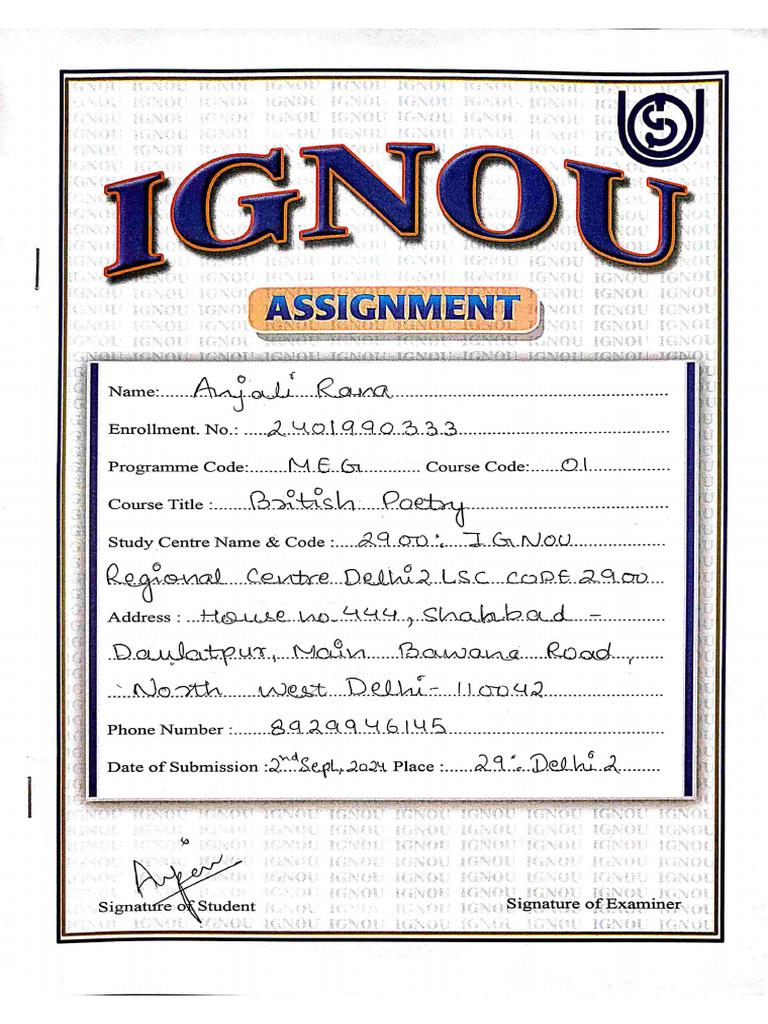 IGNOU
ASSIGNMENT
Name: Anjali Rana
Enrollment. No.: 2401990333
Programme Code: M.E.G Course Code: 01
Course Title : British Poetry
Study Centre Name & Code : 2900: I.G.NOU
Regional Centre Delhi2 LSC CODE 2900
Address : House no. 444, Shahbad -
Daulatpur, Main Bawana Road,
North West Delhi - 110042
Phone Number : 8929946145
Date of Submission : 2nd Sept, 2024 Place : 29: Delhi 2
Signature of Student Signature of Examiner